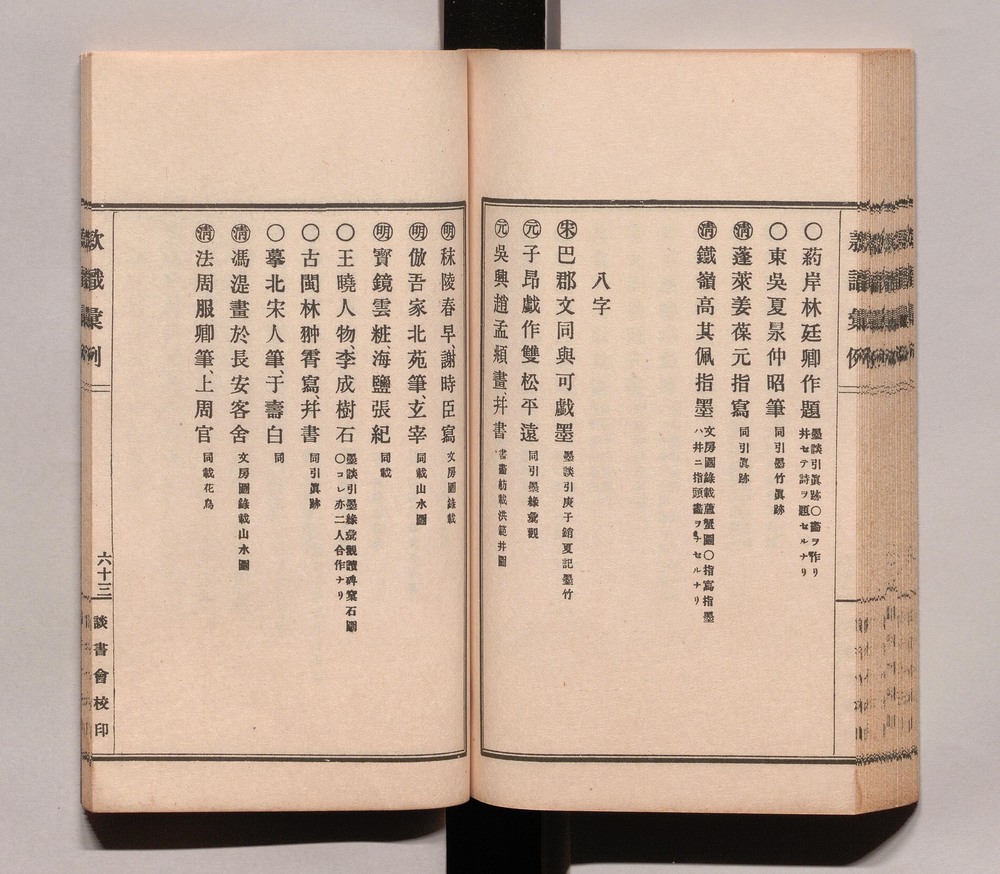 〇葯岸林廷卿作題 墨談引眞跡〇畵ヲ作リ
井セテ詩ヲ題セルナリ
〇東吳夏㫤仲昭筆 同引墨竹眞跡
淸蓬萊姜葆元指寫 同引眞跡
淸鐵嶺高其佩指墨 文房圖錄載蘆蟹圖〇指寫指墨
ハ井ニ指頭畵ヲナセルナリ
八字
宋巴郡文同與可戯墨 墨談引庚子銷夏記墨竹
元子昂戯作雙松平遠 同引墨緣彙觀
元吳興趙孟頫畫、幷書 書畵舫載洪範幷圖
明秣陵春早、謝時臣寫 文房圖錄載
明倣吾家北苑筆、玄宰 同載山水圖
明寳鏡雲粧、海鹽張紀 同載
〇王曉人物、李成樹石 墨談引墨緣彙觀讀碑窠石圖
〇コレ亦二人合作ナリ
〇古閩林翀霄寫、幷書 同引眞跡
〇摹北宋人筆、于壽白 同
淸馮湜畫於長安客舍 文房圖錄載山水圖
淸法周服卿筆、上周官 同載花鳥
款識彙例
六十三
談書會校印